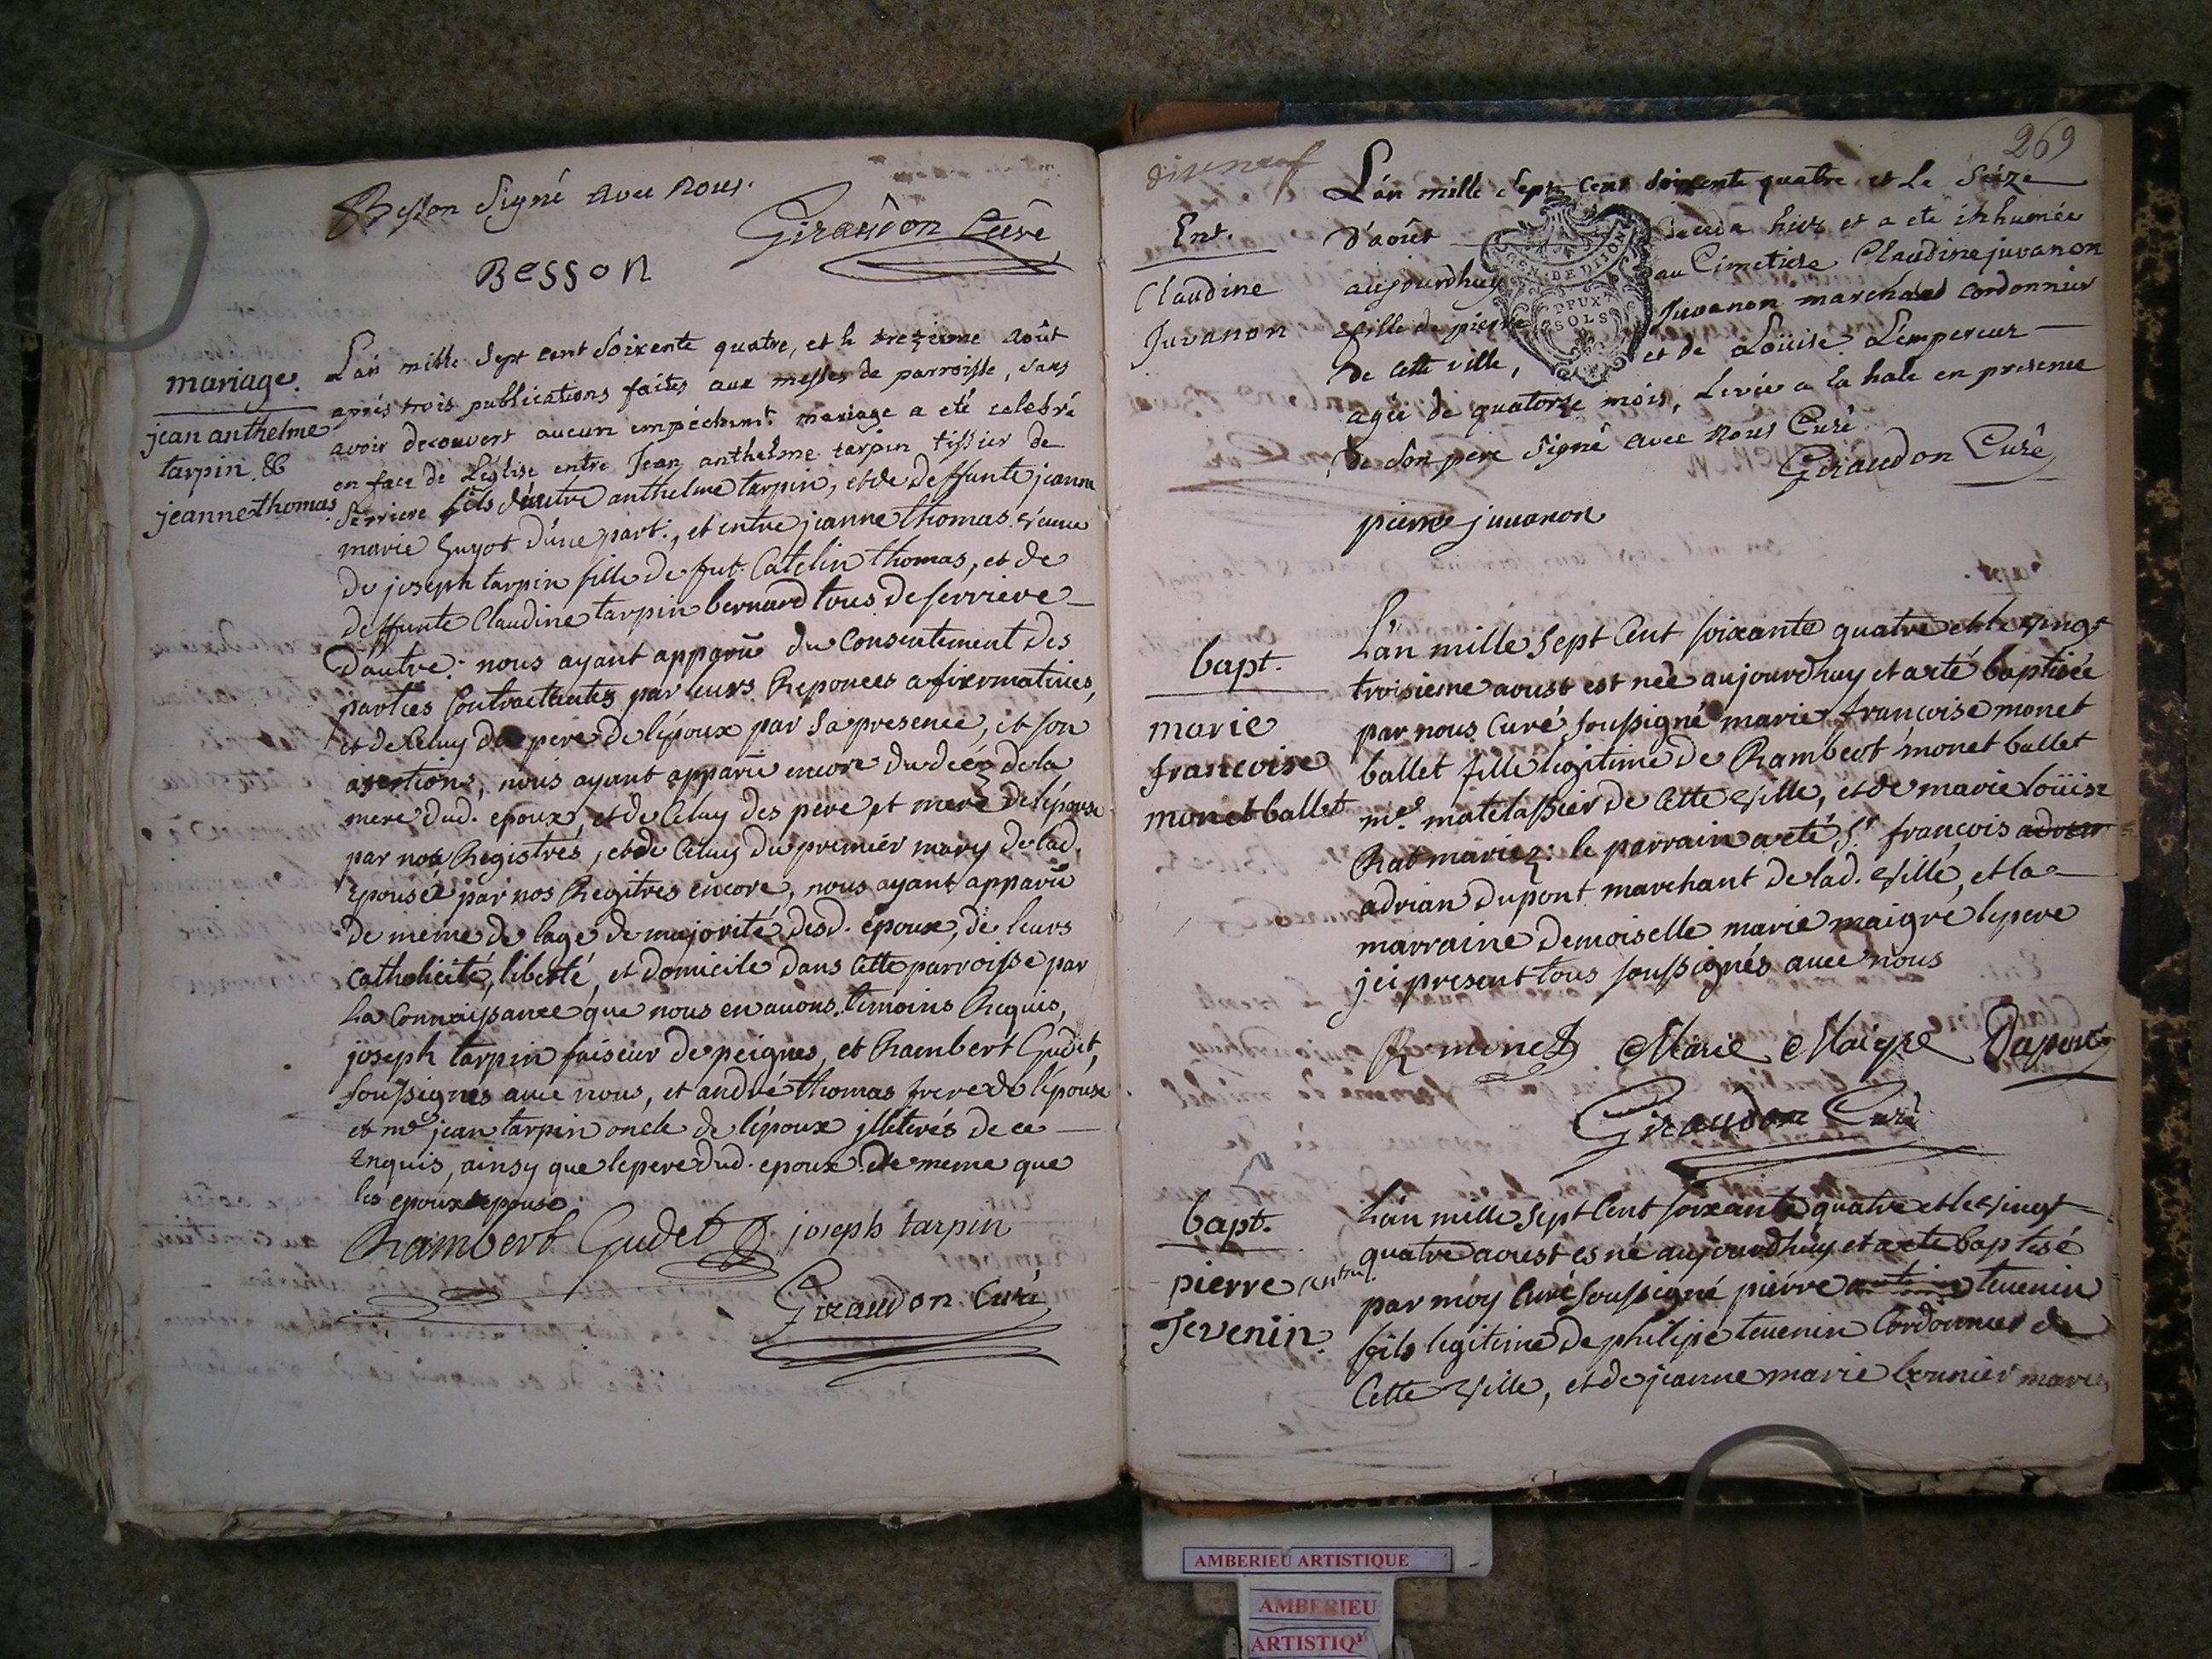 Besson Signé avec nous.
Giraudon Curé
BESSON
mariage.
jean anthelme
tarpin &
jeanne thomas
L'an mille sept cent soixente quatre, et le trezieme Août
aprés trois publications faites aux messes de parroisse, sans
avoir decouvert aucun empéchemt. mariage a eté celebré
en face de l'église entre Jean anthelme tarpin tissier de
Serriere fils d'autre anthelme tarpin, et de deffunte jeanne
marie guyot d'une part., et entre jeanne thomas veuve
de joseph tarpin fille de fut. Catelin thomas, et de
deffunte Claudine tarpin bernard tous de serriere
d'autre: nous ayant apparu du Consentement des
parties Contractantes par leurs Reponces afirmatives,
et de Celuy du pere de l'époux par sa presence, et son
asertion, nous ayant apparu encore du décéz de la
mere dud. epoux, et de Celuy des pere et mere de l'épouse
par nos Registres, et de Celuy du premier mary de lad.
Epousée par nos Regitres encore, nous ayant apparu
de meme de lage de majorité desd. époux, de leurs
catholicité, liberté, et domicile dans Cette parroisse par
la Connaissance que nous en avons. temoins Requis,
joseph tarpin faiseur de peignes, et Rambert Gudet,
soussignes avec nous, et andré thomas frere de l'épouse
et me jean tarpin oncle de l'époux jlliterés de ce
Enquis, ainsy que le pere dud. epoux. de meme que
les epoux epouse
Rambert Gudet joseph tarpin
Giraudon Curé
269
disneuf
Ent.
Claudine
Juvanon
L'an mille sept cent soixente quatre et le Séize
d'août decedé hier et a eté inhumée
aujourdhuy au Cimetiere Claudine juvanon
fille de pierre Juvanon marchand cordonnier
de cette ville, et de Loüise Lempereur
agée de quatorze mois, Levée a la hale en presence
de son pere signé avec nous Curé
Giraudon Curé
pierre juvanon
GEN. DE DIJON
DEUX
SOLS
bapt.
marie
francoise
monet ballet
L'an mille sept Cent soixante quatre et le vingt
troisieme aoust est neé aujourdhuy et a eté baptisée
par nous Curé soussigné marie francoise monet
ballet fille legitime de Rambert monet ballet
me. matelassier de Cette ville, et de marie loüise
Rat mariez: le parrain a eté Sr. francois
adrian dupont marchant de lad. ville, et la
marraine demoiselle marie maigre le pere
jci present tous soussignés avec nous
R monet Marie Maigre Dupont
Giraudon Curé
bapt.
pierre
Tevenin.
L'an mille sept Cent soixante quatre et le vingt
quatre aoust es né aujourdhuy et a ete baptisé
par moy Curé soussigné piérre tevenin
fils legitime de philipe tevenin Cordonnier de
Cette ville, et de jeanne marie bernier
AMBERIEU ARTISTIQUE
AMBERIEU
ARTISTIQ